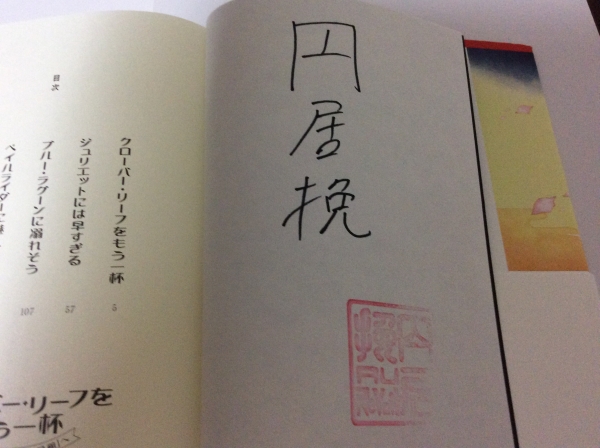 円居挽
目次
クローバー・リーフをもう一杯 5
ジュリエットには早すぎる 57
ブルー・ラグーンに溺れそう 107
ペイルライダーに
バー・リーフを
う一杯